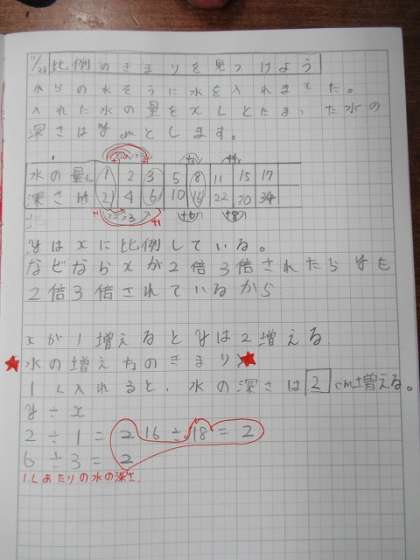 11/28 比例のきまりを見つけよう
水そうに水を入れました。
入れた水の量をxLとたまった水の
深さはycmとします。
水の量L 1 2 3 5 8 11 15 17
深さcm 2 4 6 10 16 22 30 34
yはxに比例している。
なぜならxが2倍3倍されたらyも
2倍3倍されているから
xが1増えるとyは2増える
★水の増え方のきまり★
1L入れると、水の深さは2cm増える。
y÷x
2÷1=2 16÷18=2
6÷3=2
1Lあたりの水の深さ